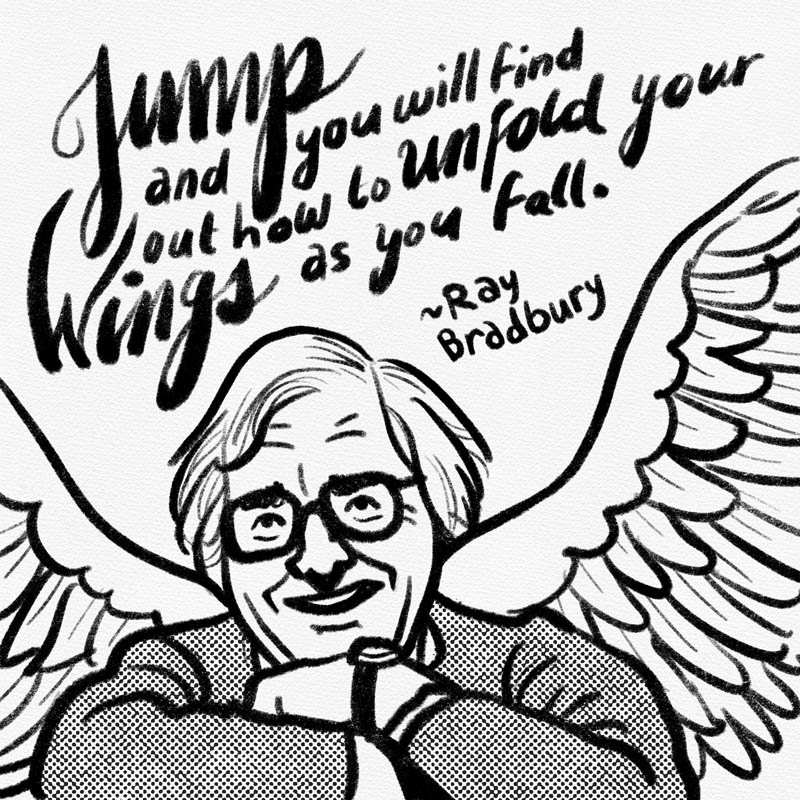 Jump you will find
and out how to unfold your
Wings as you fall.
~Ray
Bradbury